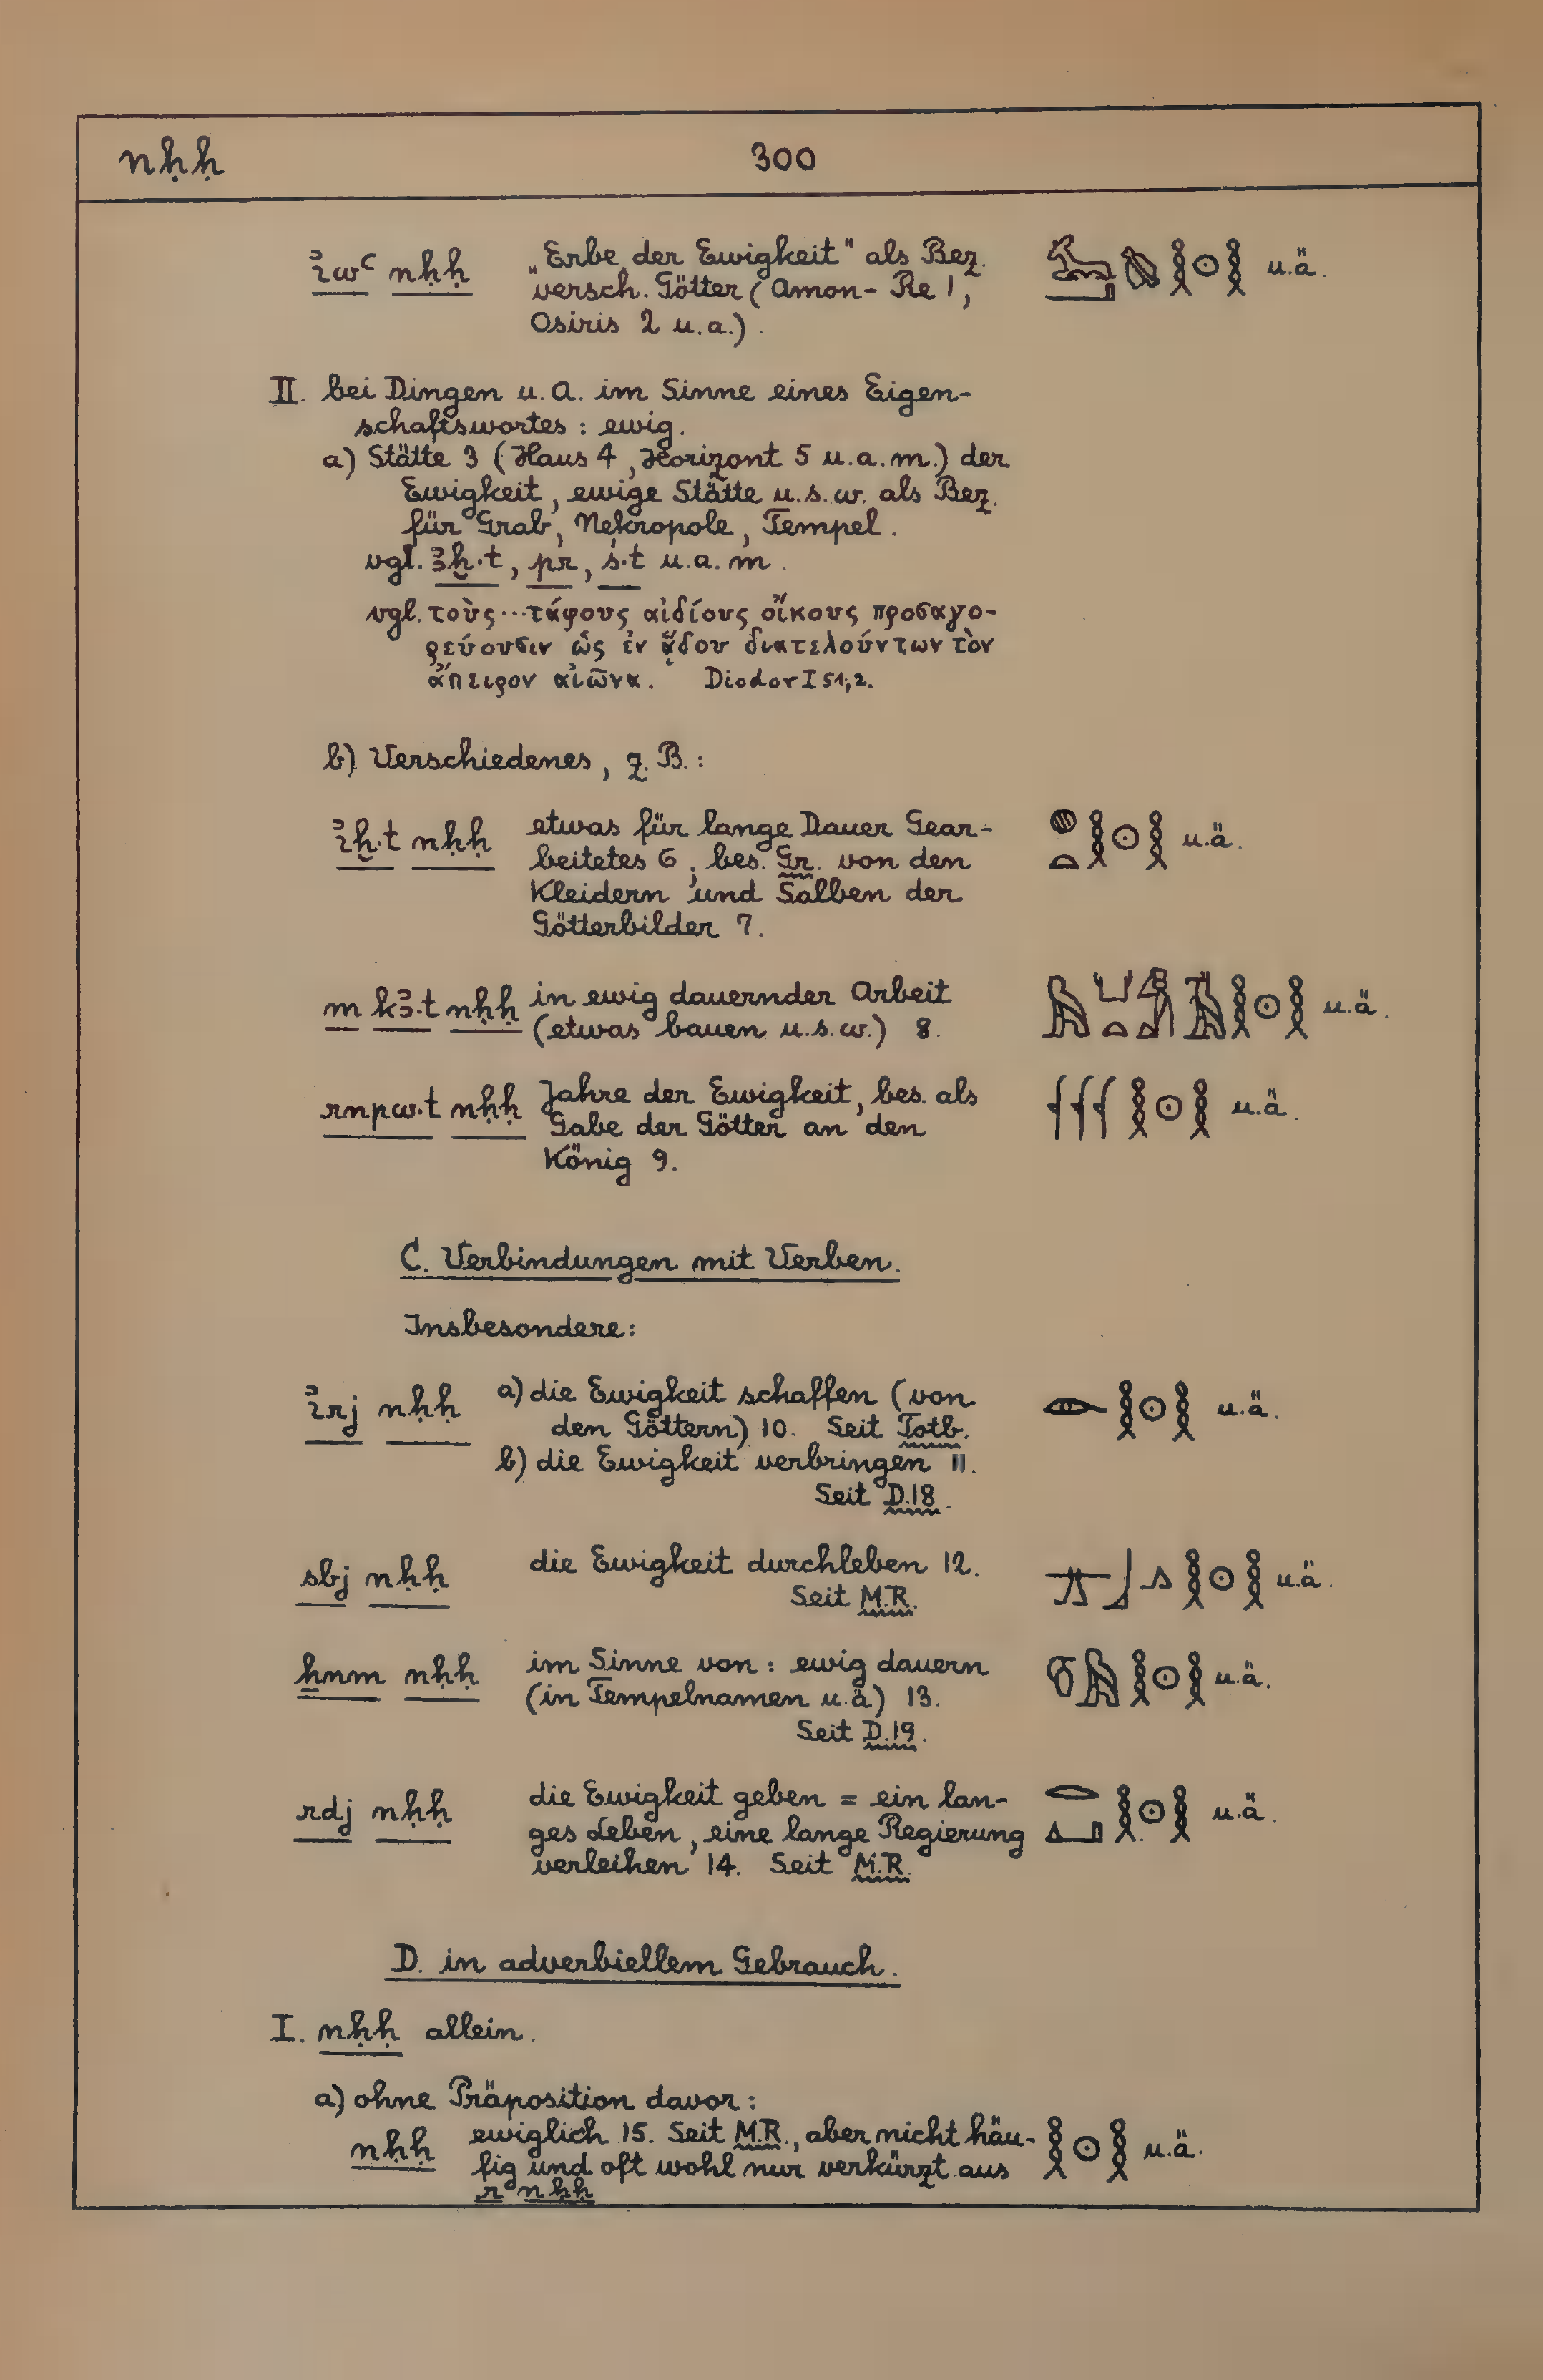 nḥḥ 300
ı͗wꜥ nḥḥ „Erbe der Ewigkeit" als Bez. 𓄫𓏤𓎛𓇳𓎛 u.ä.
versch. Götter (Amon-Re 1,
Osiris 2 u.a.).
II. bei Dingen u. a. im Sinne eines Eigen-
schaftswortes : ewig.
a) Stätte 3 (Haus 4, Horizont 5 u.a.m.) der
Ewigkeit, ewige Stätte u.s.w. als Bez.
für Grab, Nekropole, Tempel.
vgl. ꜣḫ·t, pr, ś·t u.a.m.
vgl. τοὺς···τάφους ἀϊδίους οἴκους προσαγο-
ρεύουσιν ὡς ἐν ᾅδου διατελούντων τὸν
ἄπειρον αἰῶνα. Diodor I 51,2.
b) Verschiedenes, z. B.:
ı͗ḫ·t nḥḥ etwas für lange Dauer Gear- 𓐍𓏏𓎛𓇳𓎛 u.ä.
beitetes 6; bes. Gr. von den
Kleidern und Salben der
Götterbilder 7.
m kꜣ·t nḥḥ in ewig dauernder Arbeit 𓅓𓂓𓏏𓀋𓅓𓎛𓇳𓎛 u.ä.
(etwas bauen u.s.w.) 8.
rnpw·t nḥḥ Jahre der Ewigkeit, bes. als 𓆳𓆳𓆳𓎛𓇳𓎛 u.ä.
Gabe der Götter an den
König 9.
C. Verbindungen mit Verben.
Insbesondere:
ı͗rj nḥḥ a) die Ewigkeit schaffen (von 𓁹𓎛𓇳𓎛 u.ä.
den Göttern) 10. Seit Totb.
b) die Ewigkeit verbringen 11.
Seit D.18.
sbj nḥḥ die Ewigkeit durchleben 12. 𓊃𓃀𓂻𓎛𓇳𓎛 u.ä.
Seit M.R.
ẖnm nḥḥ im Sinne von : ewig dauern 𓎸𓅓𓎛𓇳𓎛 u.ä.
(in Tempelnamen u.ä) 13.
Seit D.19.
rdj nḥḥ die Ewigkeit geben = ein lan- 𓂋𓂞𓎛𓇳𓎛 u.ä.
ges Leben, eine lange Regierung
verleihen 14. Seit M.R.
D. in adverbiellem Gebrauch.
I. nḥḥ allein.
a) ohne Präposition davor :
nḥḥ ewiglich 15. Seit M.R., aber nicht häu- 𓎛𓇳𓎛 u.ä.
fig und oft wohl nur verkürzt aus
r nḥḥ